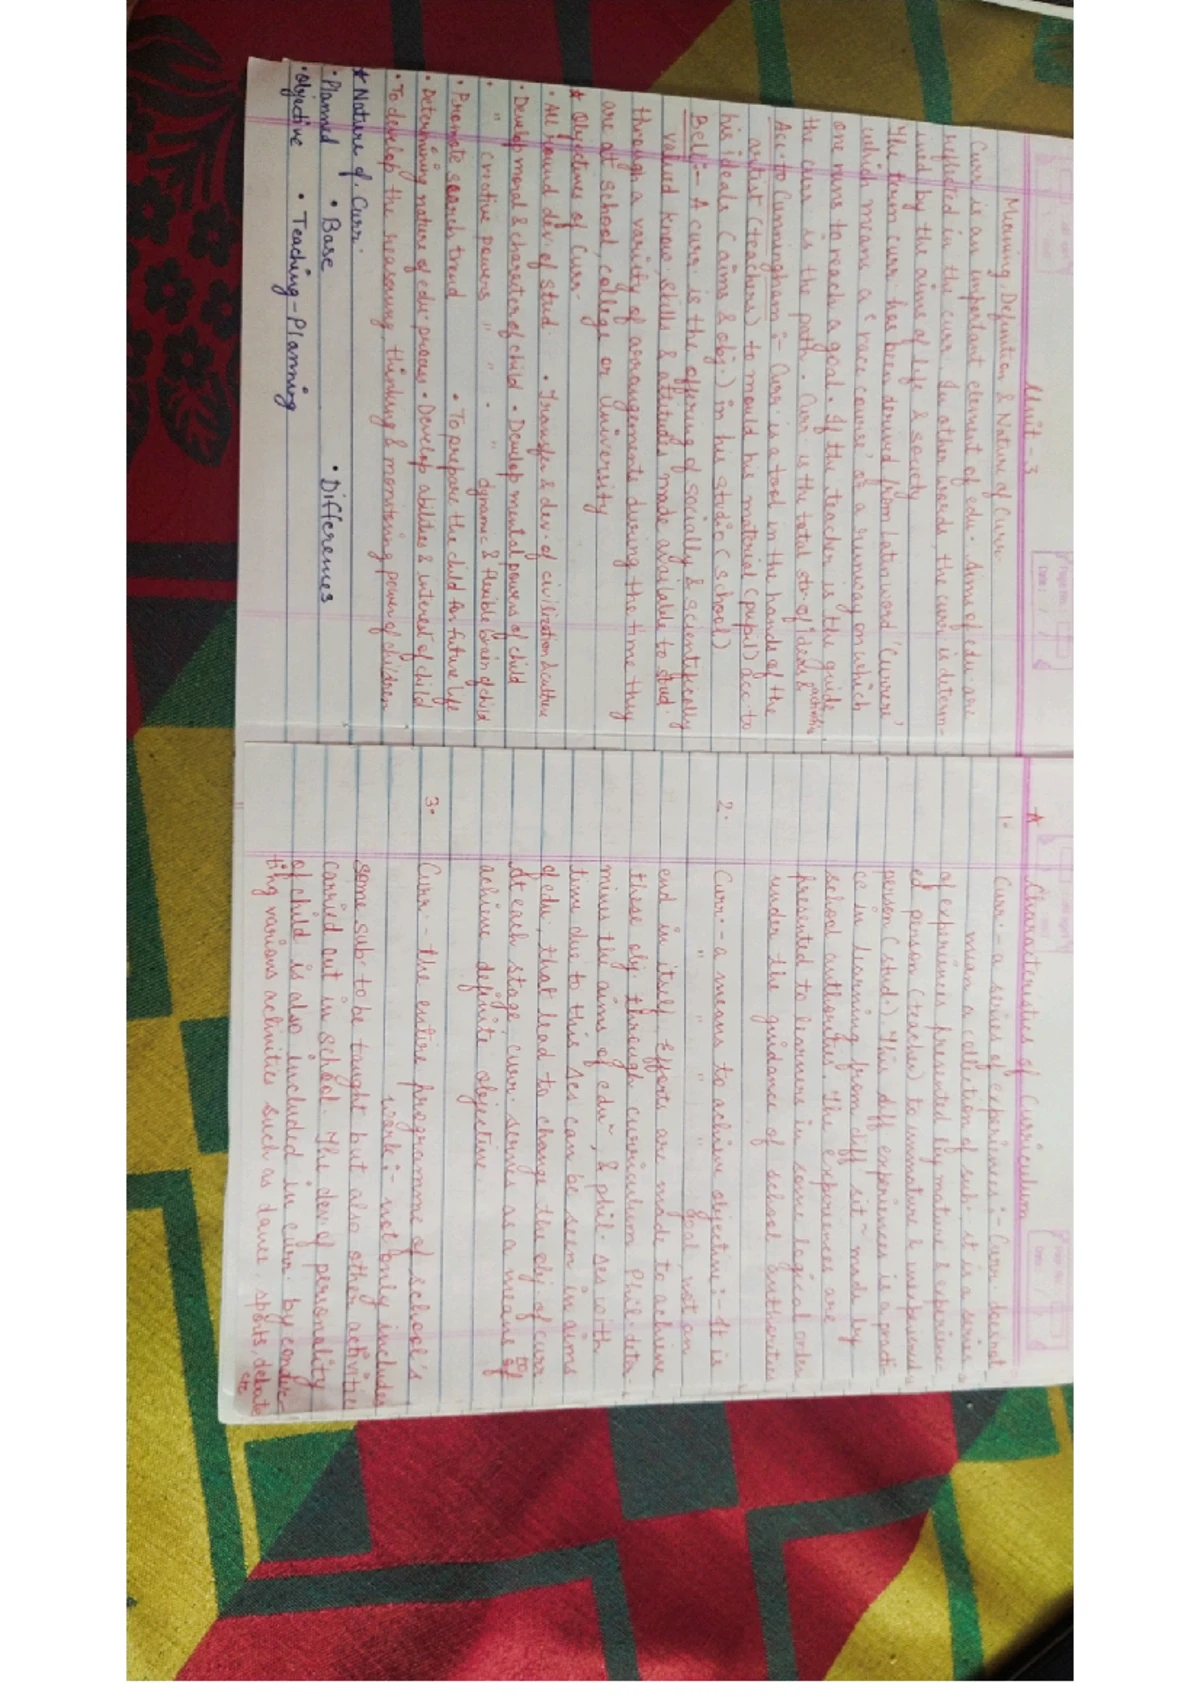 Unit - 3
Meaning, Definition & Nature of Curr.
Curr. is an important element of edu. Aims of edu. are
reflected in the curr. In other words, the curr. is determ-
ined by the aims of life & society
The term curr. has been derived from latin word 'Currere'
which means a 'race course' or a runway on which
one runs to reach a goal. If the teacher is the guide,
the curr. is the path. Curr. is the total str. of ideas &
activities
Acc. to Cunningham :- Curr. is a tool in the hands of the
artist (teachers) to mould his material (pupil) acc. to
his ideals (aims & obj.) in his studio (school)
Bell :- A curr. is the offering of socially & scientifically
valued know., skills & attitudes made available to stud.
through a varity of arrangements during the time they
are at school, college or University
* Objectives of Curr.
• All round dev. of stud. • Transfer & dev. of civilization & culture
• Develop moral & charater of child • Develop mental powers of child
• " creative powers " " • " dynamic & flexible brain of child
• Promote search trend • To prepare the child for future life
• Determining nature of edu. process • Develop abilities & interest of child
• To develop the reasoning, thinking & monitering power of children
* Nature of Curr.
• Planned • Base • Differences
• Objective • Teaching - Planning
* Characteristics of Curriculum
1. Curr. - a series of experiences :- Curr. does not
mean a collection of sub. it is a series
of experiences presented by mature & experienc-
ed person (teacher) to immature & inexperienced
person (stud.). This diff experiences is a practi-
ce in learning from diff sitn made by
school authorities. The experiences are
presented to learners in some logical order
under the guidance of school authorities
2. Curr. - a means to achieve objective :- It is
" " " " goal, not an
end in itself. Efforts are made to achieve
these obj. through curriculum Phil. deter
mines the aims of edun, & phil. with
time due to this can be seen in aims
of edu, that lead to change the obj. of curr
At each stage, curr. serves as a means to
achieve definite objective.
3. Curr. - the entire programme of school's
work :- not only includes
some sub. to be taught but also other activities
carried out in school. The dev. of personality
of child is also included in curr. by conduc-
ting various activities such as dance, sports, debate
etc